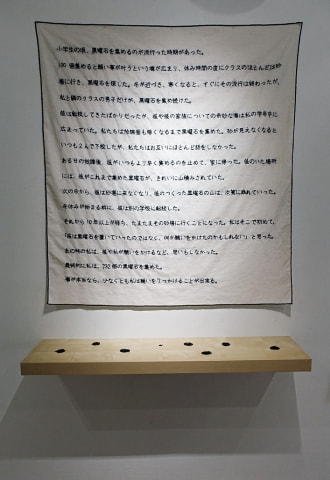 小学生の頃、黒曜石を集めるのが流行った時期があった。
100個集めると願い事が叶うという噂が広まり、休み時間の度にクラスのほとんどは砂
場に行き、黒曜石を探した。冬が近づき、寒くなると、すぐにその流行は終わったが、
私と隣のクラスの男子だけが、黒曜石を集め続けた。
彼は転校してきたばかりだったが、彼や彼の家族についての奇妙な噂は私の学年中に
広まっていた。私たちは放課後も暗くなるまで黒曜石を集めた。砂が見えなくなると
いつも2人で下校したが、私たちはお互いにほとんど話をしなかった。
ある日の放課後、彼がいつもより早く集めるのを止めて、家に帰った。彼のいた場所
には、彼がこれまで集めた黒曜石が、きれいに山積みされていた。
次の日から、彼は砂場に来なくなり、彼のつくった黒曜石の山は、次第に崩れていった。
冬休みが始まる前に、彼は別の学校に転校した。
それから10年以上が経ち、たまたまその砂場に行くことになった。私はそこで初めて、
「彼は黒曜石を置いていったのではなく、何か願いをかけたのかもしれない」と思った。
あの時の私は、彼や私が願いをかけるなど、思いもしなかった。
最終的に私は、232個の黒曜石を集めた。
噂が本当なら、少なくとも私は願いを2つかけることが出来る。